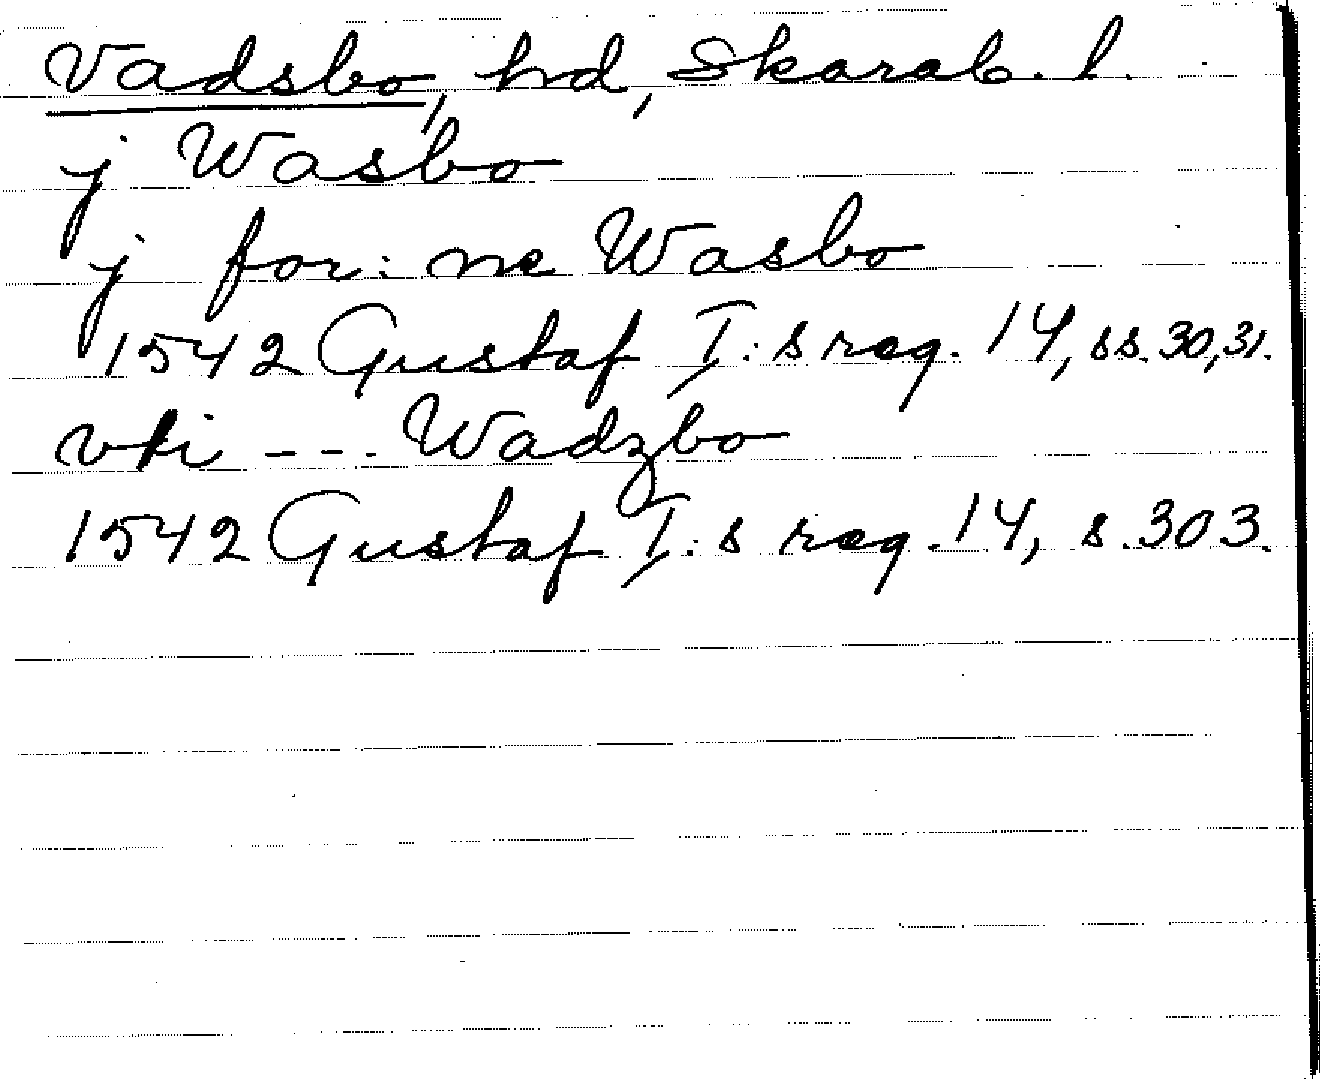 Vadsbo, hd, Skarab. l.
j Wasbo
j for: ne Wasbo
1542 Gustaf I:s reg. 14, ss. 30, 31.
vti --- Wadzbo
1542 Gustaf I:s reg. 14, s. 303.